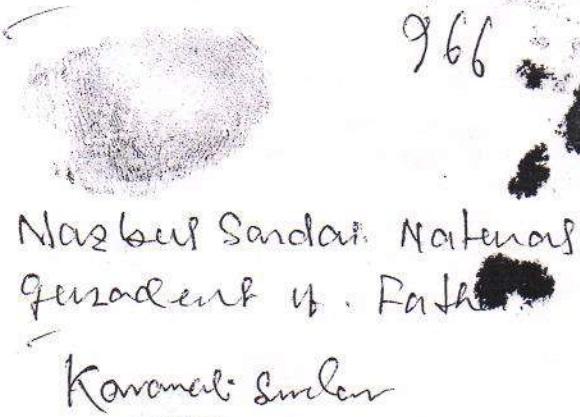 966
Nazbul Sardar. Natural
guradent of. Fath
Karamali Sardar